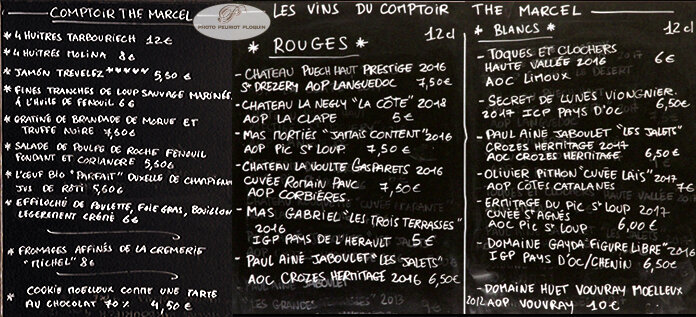 COMPTOIR THE MARCEL
* 4 HUITRES TARBOURIECH 12€
* 4 HUITRES MOLINA 8€
* JAMÓN TREVELEZ ***** 5,50€
* FINES TRANCHES DE LOUP SAUVAGE MARINÉE
À L'HUILE DE FENOUIL 6€
* GRATINÉ DE BRANDADE DE MORUE ET
TRUFFE NOIRE 7,50€
* SALADE DE POULPE DE ROCHE FENOUIL
FONDANT ET CORIANDRE 5,50€
* L'OEUF BIO "PARFAIT" DUXELLE DE CHAMPIGNON
JUS DE RÔTI 5,50€
* EFFILOCHÉ DE POULETTE, FOIE GRAS, BOUILLON
LEGEREMENT CRÉMÉ 6€
* FROMAGES AFFINÉS DE LA CREMERIE
"MICHEL" 8€
* COOKIE MOELLOUX COMME UNE TARTE
AU CHOCOLAT 70% 4,50€
P
PHOTO PEURIOT PLOQUIN
LES VINS DU COMPTOIR THE MARCEL
* ROUGES * 12cl
- CHATEAU PUECH HAUT PRESTIGE 2016
ST DREZERY AOP LANGUEDOC 7,50€
- CHATEAU LA NEGLY "LA CÔTE" 2018
AOP LA CLAPE 5€
- MAS MORTIÈS "JAMAIS CONTENT" 2016
AOP PIC ST LOUP. 7,50€
- CHATEAU LA VOULTE GASPARETS 2016
CUVÉE ROMAIN PAUC 7,50€
AOP CORBIÈRES.
- MAS GABRIEL "LES TROIS TERRASSES"
2016
IGP PAYS DE L'HERAULT 5€
- PAUL AINÉ JABOULET "LES JALETS"
AOC CROZES HERMITAGE 2016 6,50€
* BLANCS * 12cl
- TOQUES ET CLOCHERS
HAUTE VALLÉE 2016 6€
AOC LIMOUX
- SECRET DE LUNES VIONGNIER.
2017 IGP PAYS D'OC 6,50€
- PAUL AINÉ JABOULET "LES JALETS"
CROZES HERMITAGE 2017
AOC CROZES HERMITAGE 6,50€
- OLIVIER PITHON "CUVÉE LAÏS" 2017
AOP CÔTES CATALANES 7€
- ERMITAGE DU PIC ST LOUP 2017
CUVÉE ST AGNÈS
AOC PIC ST LOUP 6,00€
- DOMAINE GAYDA "FIGURE LIBRE" 2016
IGP PAYS D'OC/CHENIN 6,50€
- DOMAINE HUET VOUVRAY MOELLEUX
2012 AOP VOUVRAY 10€